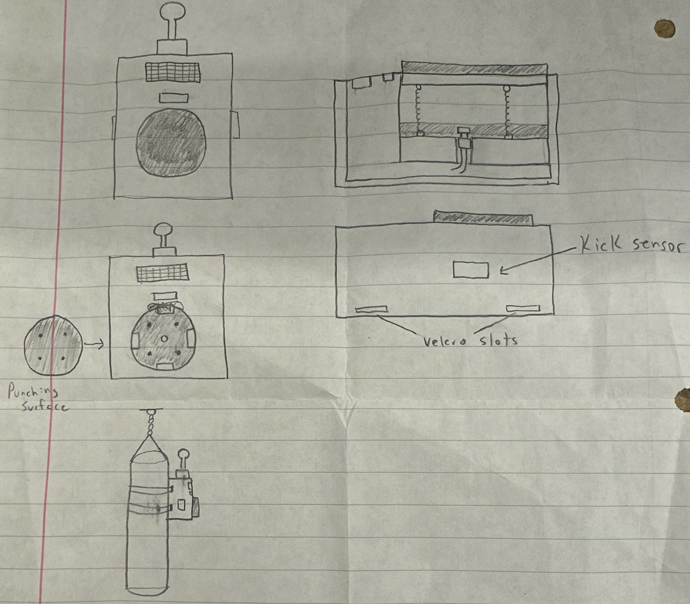 Kick sensor
Velcro slots
Punching
Surface